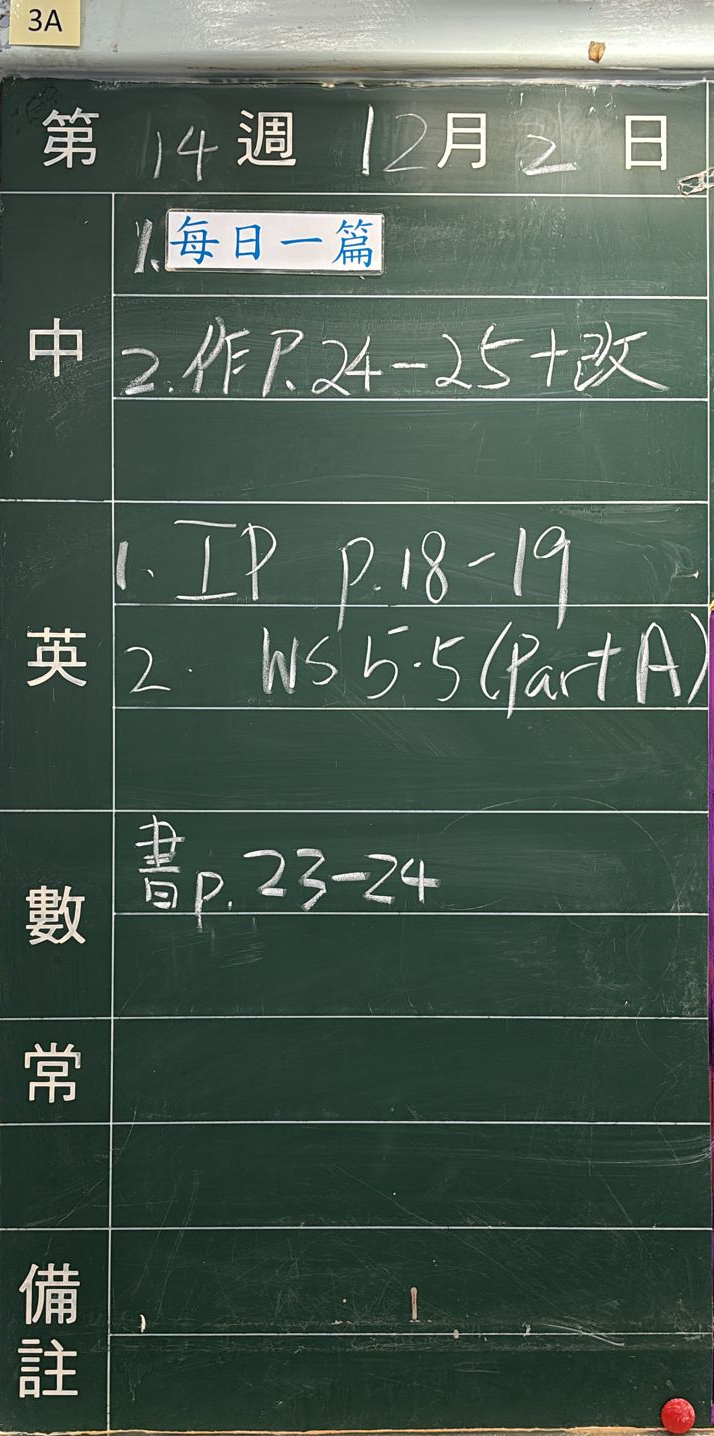 3A
第 14 週 12 月 2 日
中
1. 每日一篇
2. 作P.24-25+改
英
1. IP p.18-19
2. WS 5.5 (Part A)
數
書p.23-24
常
備註